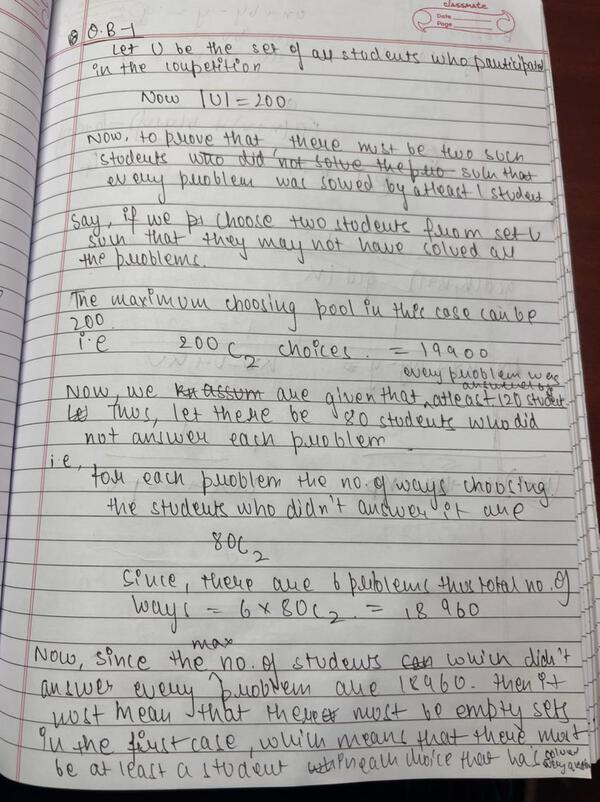 classmate
Date
Page
Q.B-1
Let U be the set of all students who participated
in the competition
Now |U| = 200
Now, to prove that, there must be two such
students who did not solve the pro such that
every problem was solved by atleast 1 student.
say, if we choose two students from set U
such that they may not have solved all
the problems.
The maximum choosing pool in this case can be
200.
i.e 200C2 choices. = 19900
every problem was
answered by
Now, we assum are given that, atleast 120 student
Thus, let there be 80 students who did
not answer each problem
i.e,
for each problem the no. of ways choosing
the students who didn't answer it are
80C2
Since, there are 6 problems thus total no. of
ways = 6 x 80C2 = 18960
max
Now, since the no. of students can which didn't
answer every problem are 18960. then it
most mean that there most be empty sets
in the first case, which means that there most
be at least a student in each choice that has solved
every question